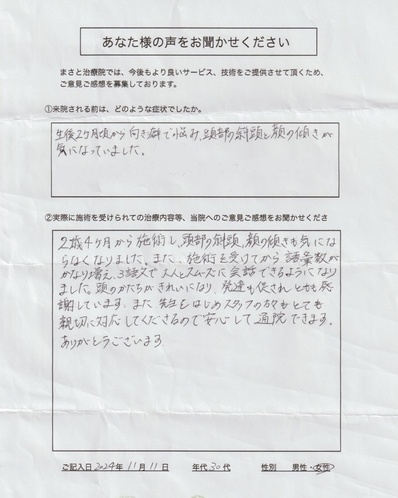 あなた様の声をお聞かせください
まさと治療院では、今後もより良いサービス、技術をご提供させて頂くため、
ご意見ご感想を募集しております。
①来院される前は、どのような症状でしたか。
生後2ヶ月頃から向き癖で悩み、頭部の斜頭と顔の傾きが
気になっていました。
②実際に施術を受けられての治療内容等、当院へのご意見ご感想をお聞かせくださ
2歳4ヶ月から施術し、頭部の斜頭、顔の傾きも気にな
らなくなりました。また、施術を受けてから語彙数が
かなり増え、3語文で大人とスムーズに会話できるようになり
ました。頭のかたちがきれいになり、発達も促され とても感
謝しています。また 先生をはじめスタッフの方々もとても
親切に対応してくださるので安心して通院できます。
ありがとうございます
ご記入日 2024年 11月 11日 年代 30代 性別 男性・女性